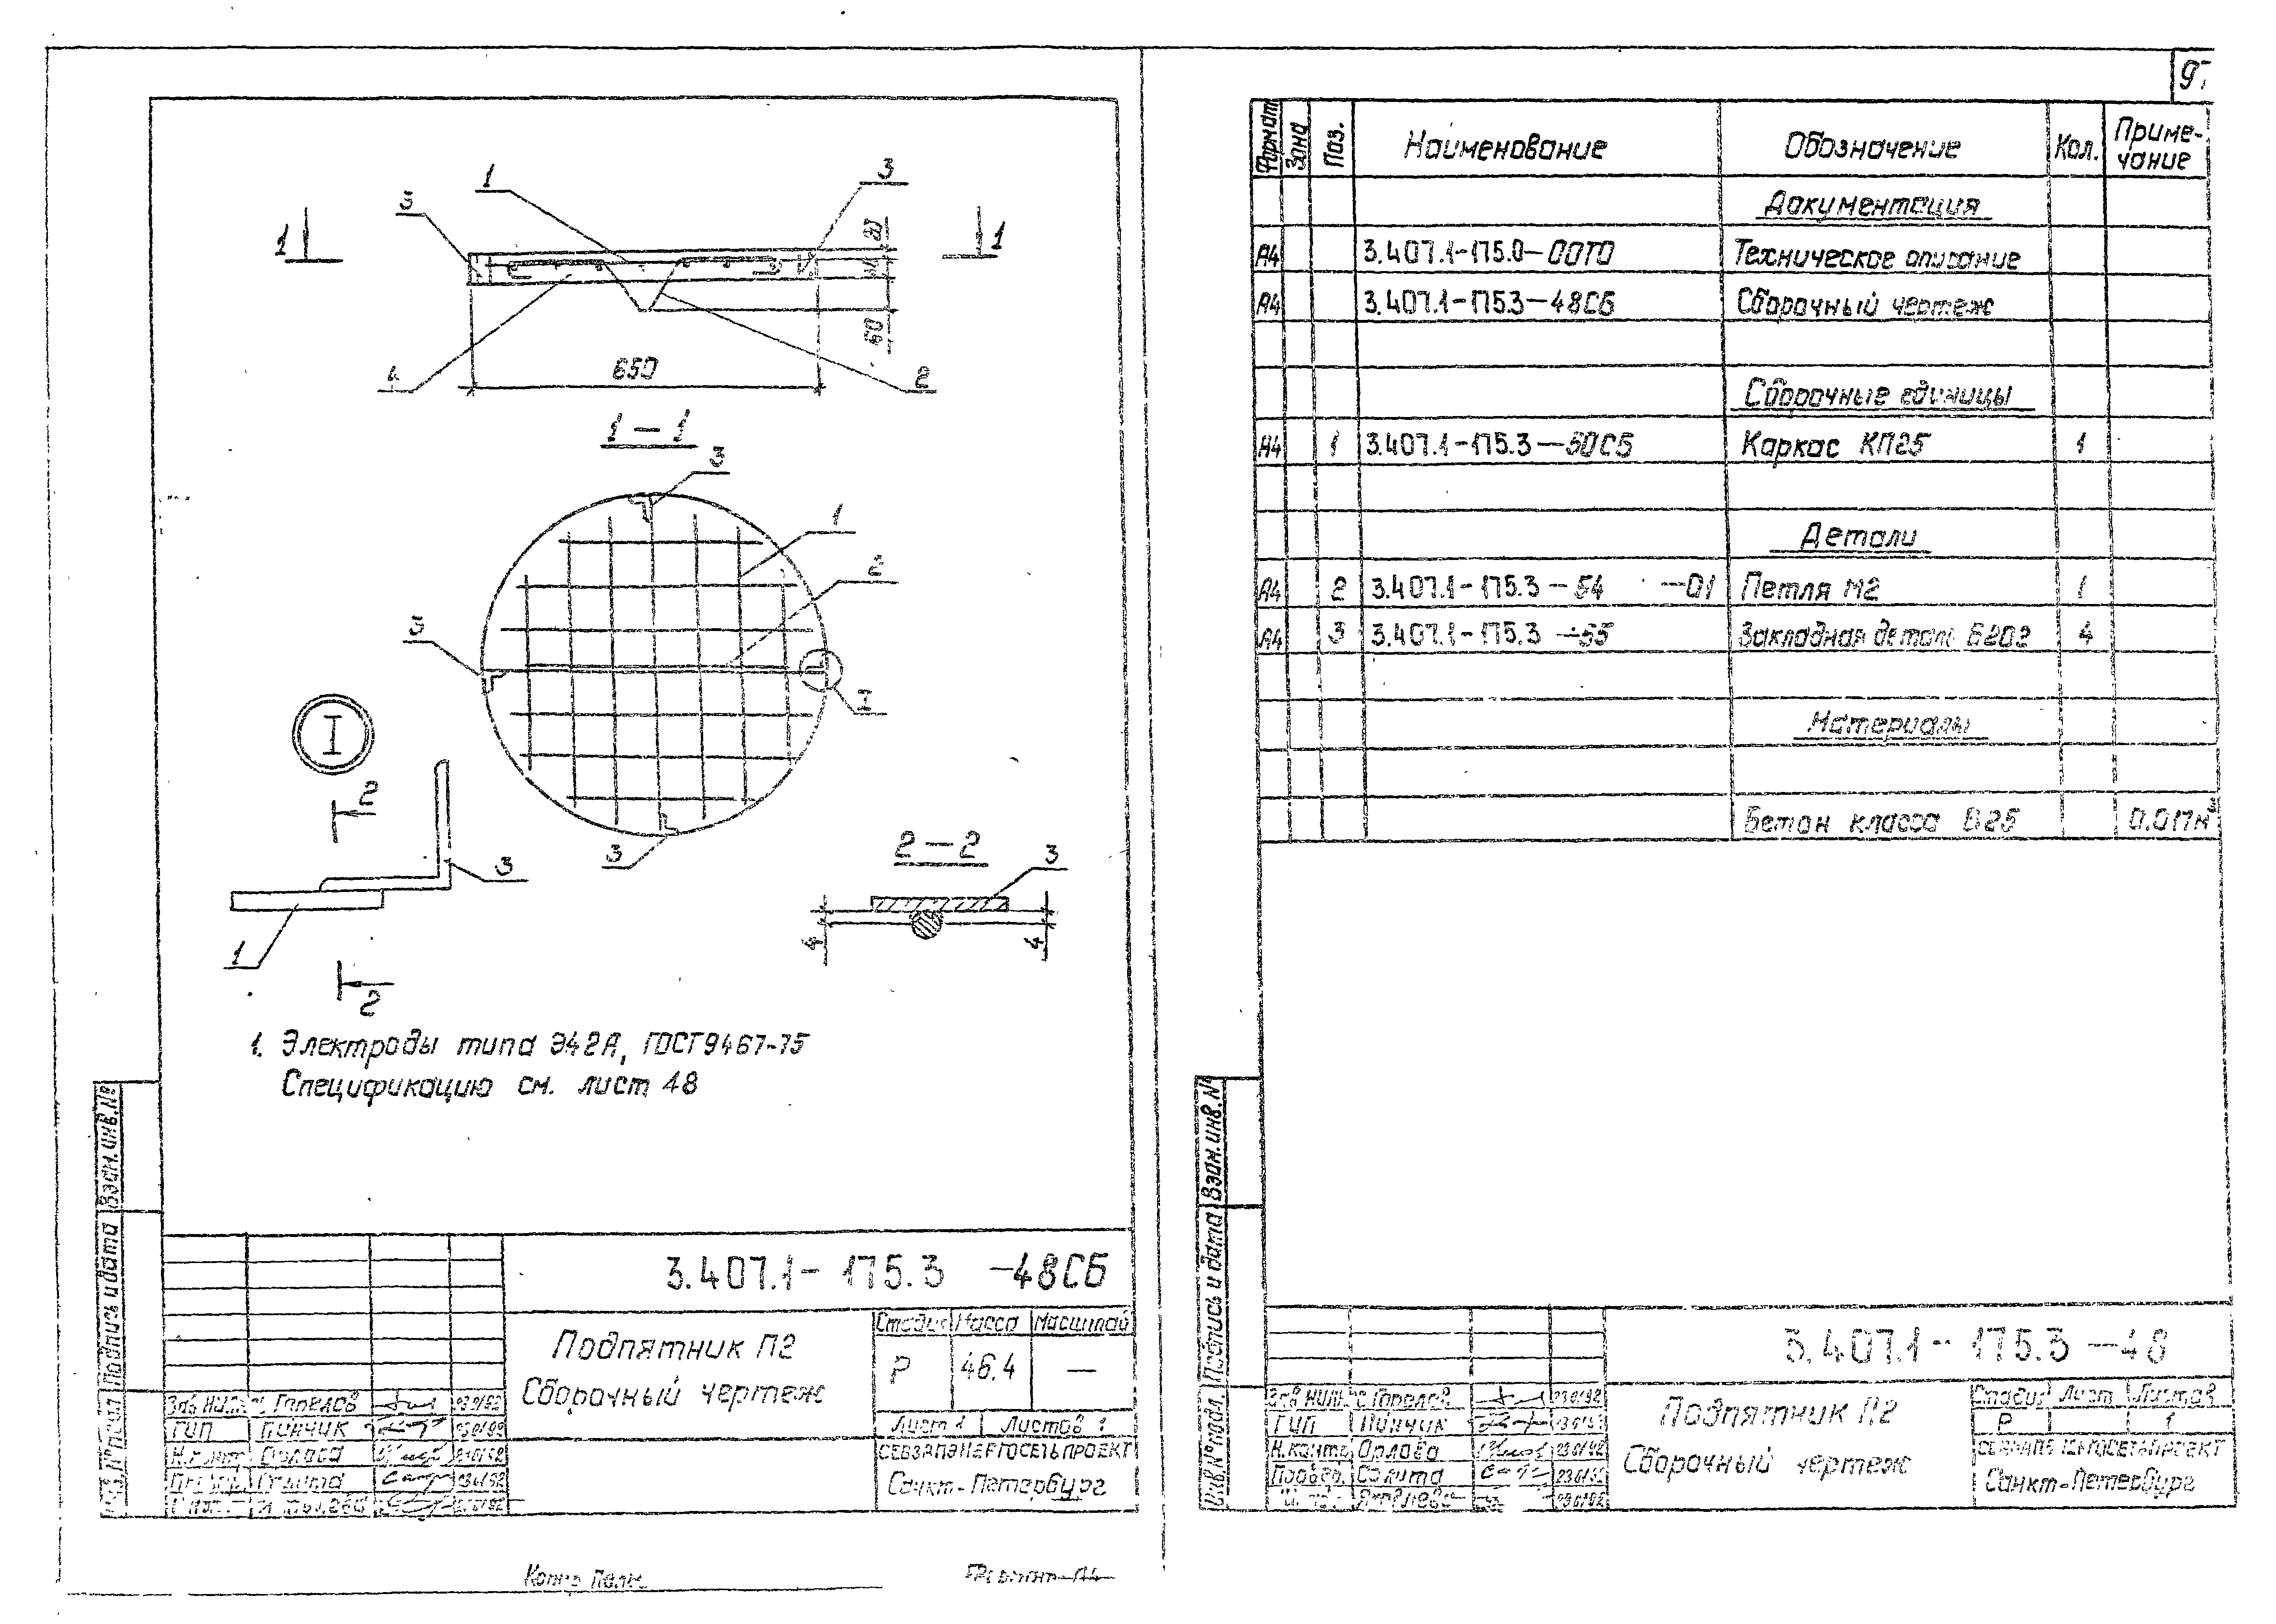 3
1
3
1
1
20
60
650
4
2
1-1
3
1
2
3
I
I
2
3
3
2-2
3
1
4
4
2
1. Электроды типа Э42А, ГОСТ 9467-75
Спецификацию см. лист 48
Взам. инв. №
Подпись и дата
3.407.1-175.3 -48СБ
Подпятник П2
Сборочный чертеж
Стадия Масса Масштаб
Р 46.4 —
Лист 1 Листов 1
СЕВЗАПЭНЕРГОСЕТЬПРОЕКТ
Санкт-Петербург
Зав. НИЛКЕС Горелов
ГИП Пинчик
Н.контр. Орлова
Формат А4
Формат Зона Поз. Наименование Обозначение Кол. Приме-
чание
Документация
А4 3.407.1-175.0-00ТО Техническое описание
А4 3.407.1-175.3-48СБ Сборочный чертеж
Сборочные единицы
А4 1 3.407.1-175.3-50СБ Каркас КП25 1
Детали
А4 2 3.407.1-175.3-54 -01 Петля М2 1
А4 3 3.407.1-175.3-55 Закладная деталь Б202 4
Материалы
Бетон класса В25 0.017м³
Взам. инв. №
Подпись и дата
Инв. № подл.
3.407.1-175.3-48
Подпятник П2
Сборочный чертеж
Стадия Лист Листов
Р 1
СЕВЗАПЭНЕРГОСЕТЬПРОЕКТ
Санкт-Петербург
ГИП Пинчик
Н.контр. Орлова
Провер. Солита
Яковлева